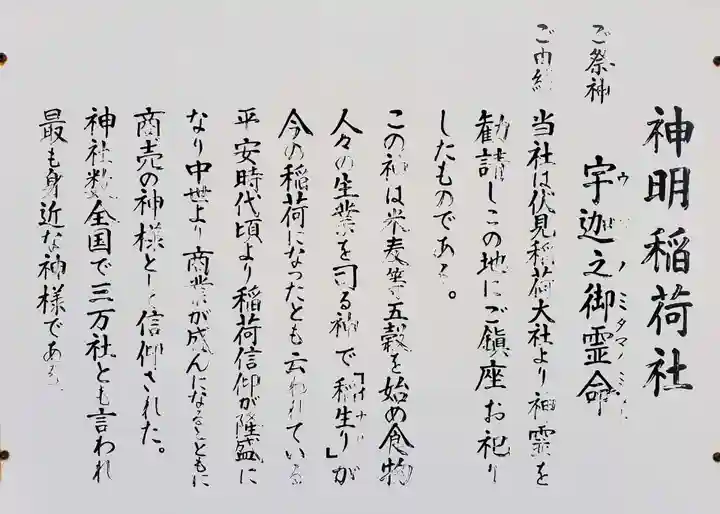 神明稲荷社
ご祭神 宇迦之御霊命
ウカノミタマノミコト
ご由緒 当社は伏見稲荷大社より神霊を
勧請しこの地にご鎮座お祀り
したものである。
この神は米麦等五穀を始め食物
人々の生業を司る神で「稲生り」が
イナリ
今の稲荷になったとも云われている
平安時代頃より稲荷信仰が隆盛に
なり中世より商業が盛んになるとともに
商売の神様として信仰された。
神社数全国で三万社とも言われ
最も身近な神様である。